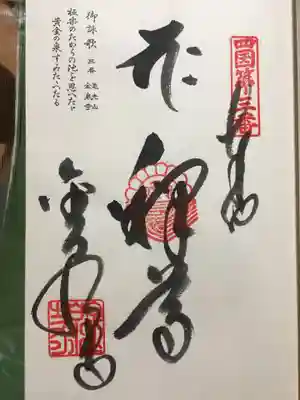 四国第三番
奉納
釈尊
金泉寺
御詠歌 三番 亀光山 金泉寺
極楽のたからの池を思へたゞ
黄金の泉すみたゝへたる